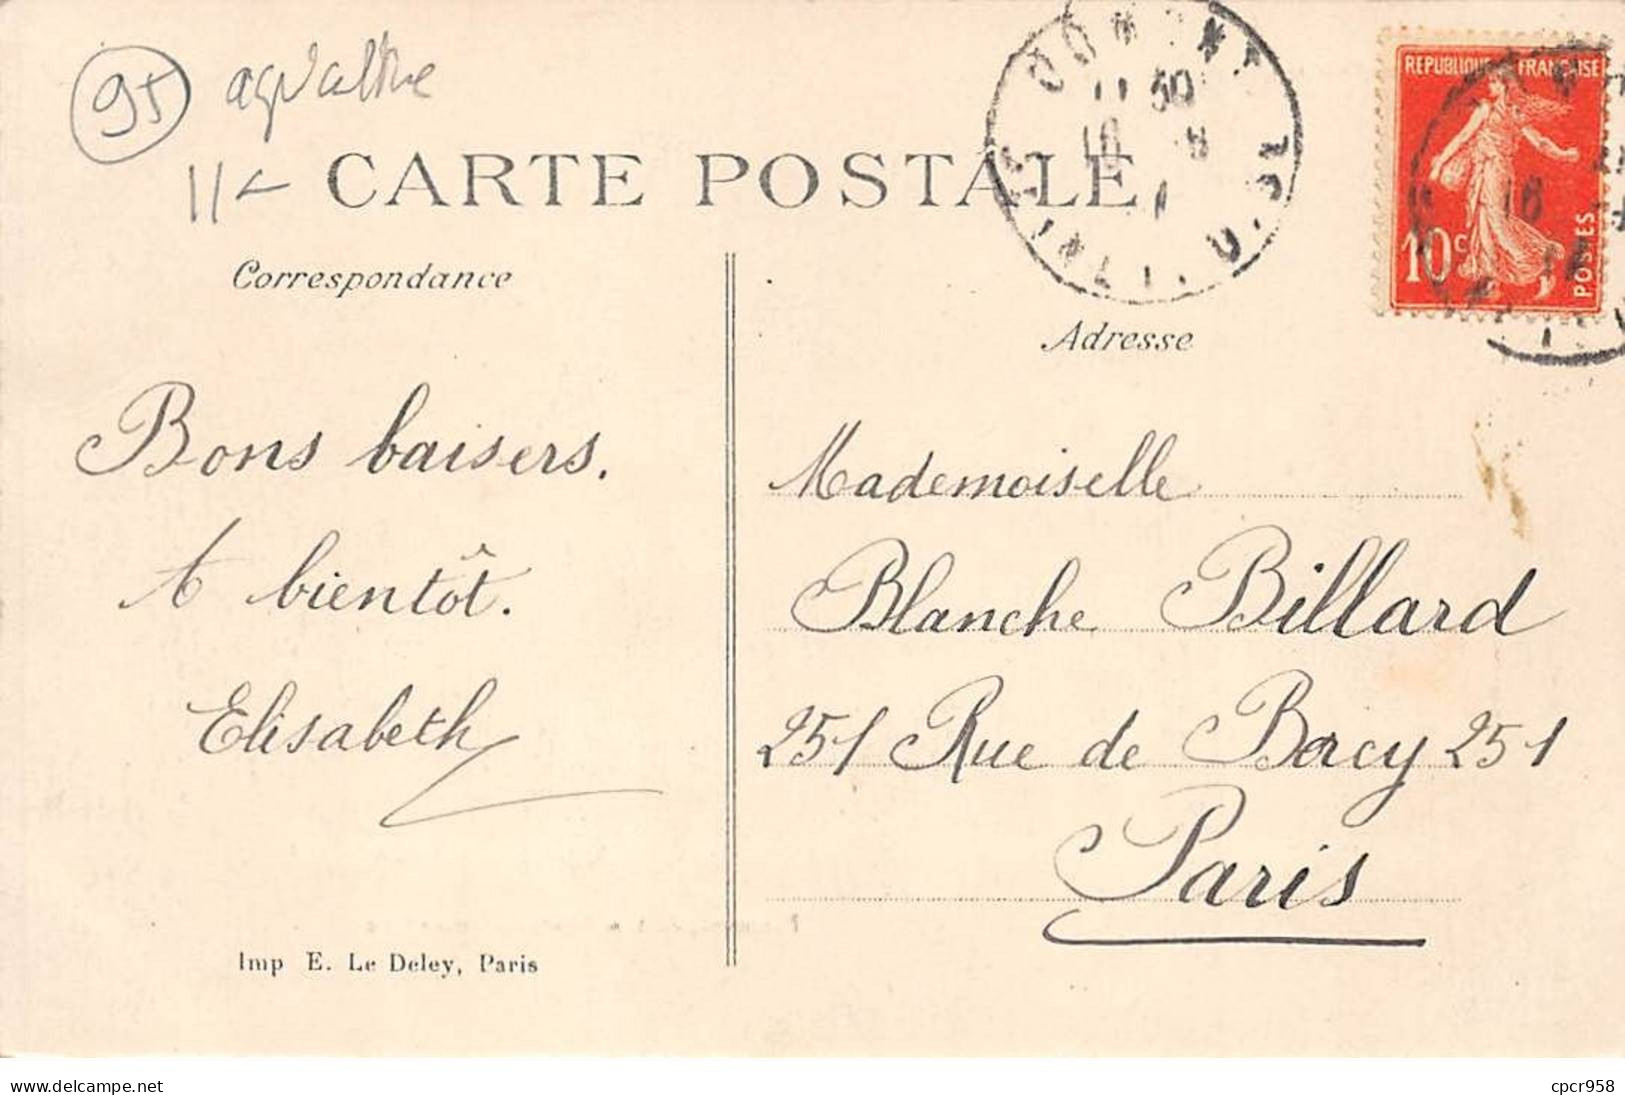 95
11
CARTE POSTALE
DOMONT
11 50
16 - 8
REPUBLIQUE FRANÇAISE
10c
POSTES
Correspondance
Adresse
Bons baisers.
A bientôt.
Elisabeth
Mademoiselle
Blanche Billard
251 Rue de Bercy 251
Paris
Imp E. Le Deley, Paris
www.delcampe.net
cpcr958